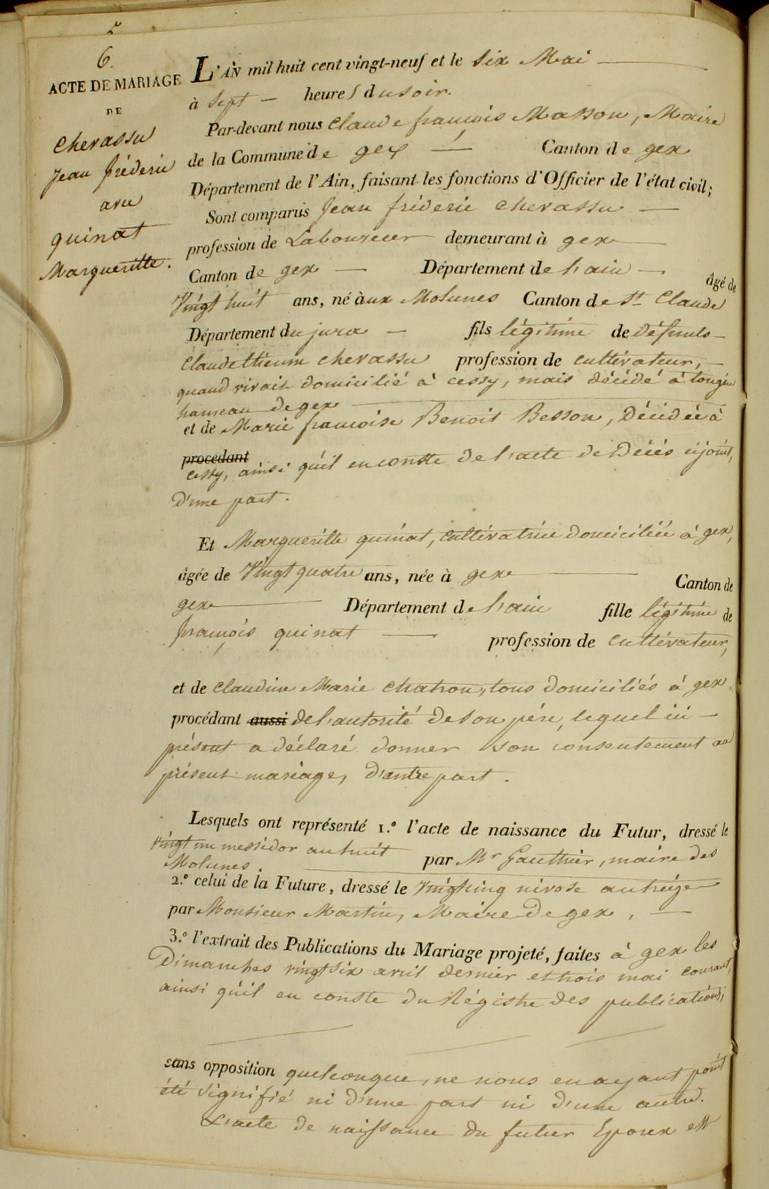 6.
ACTE DE MARIAGE
DE
Chevassu
Jean fréderic
avec
quinat
Margueritte.
L'AN mil huit cent vingt-neuf et le six Mai
à sept heures du soir.
Par-devant nous Claude françois Masson, Maire
de la Commune de gex Canton de gex
Département de l'Ain, faisant les fonctions d'Officier de l'état civil;
Sont comparus Jean fréderic Chevassu
profession de Laboureur demeurant à gex
Canton de gex Département de L'ain âgé de
Vingt huit ans, né aux Molunes Canton de St Claude
Département du jura fils légitime de défunts
Claude etienne chevassu profession de cultivateur,
quand vivait domicilié à cessy, mais décédé à tougin
hameau de gex
et de Marie françoise Benoit Besson, Décédée à
procédant
cessy, ainsi qu'il en conste de l'acte de Décés cijoint,
D'une part.
Et Marguerille quinat, cultivatrice domiciliée à gex,
âgée de Vingt quatre ans, née à gex Canton de
gex Département de L'ain fille légitime de
françois quinat profession de cultivateur,
et de Claudine Marie Chatron, tous domiciliés à gex,
procédant aussi de l'autorité de son pére, lequel ici
présent a déclaré donner son consentement au
présent mariage, D'autre part.
Lesquels ont représenté 1.º l'acte de naissance du Futur, dressé le
vingt un messidor an huit par Mr Gauthier, maire des
Molunes.
2.º celui de la Future, dressé le vingtcinq nivose an treize
par Monsieur Martin, Maire de gex,
3.º l'extrait des Publications du Mariage projeté, faites à gex les
Dimanches vingt six avril dernier et trois mai courant,
ainsi qu'il en conste du Régistre des publications,
sans opposition quelconque, ne nous en ayant point
été signifié ni d'une part ni d'une autre.
L'acte de naissance du futur Epoux est